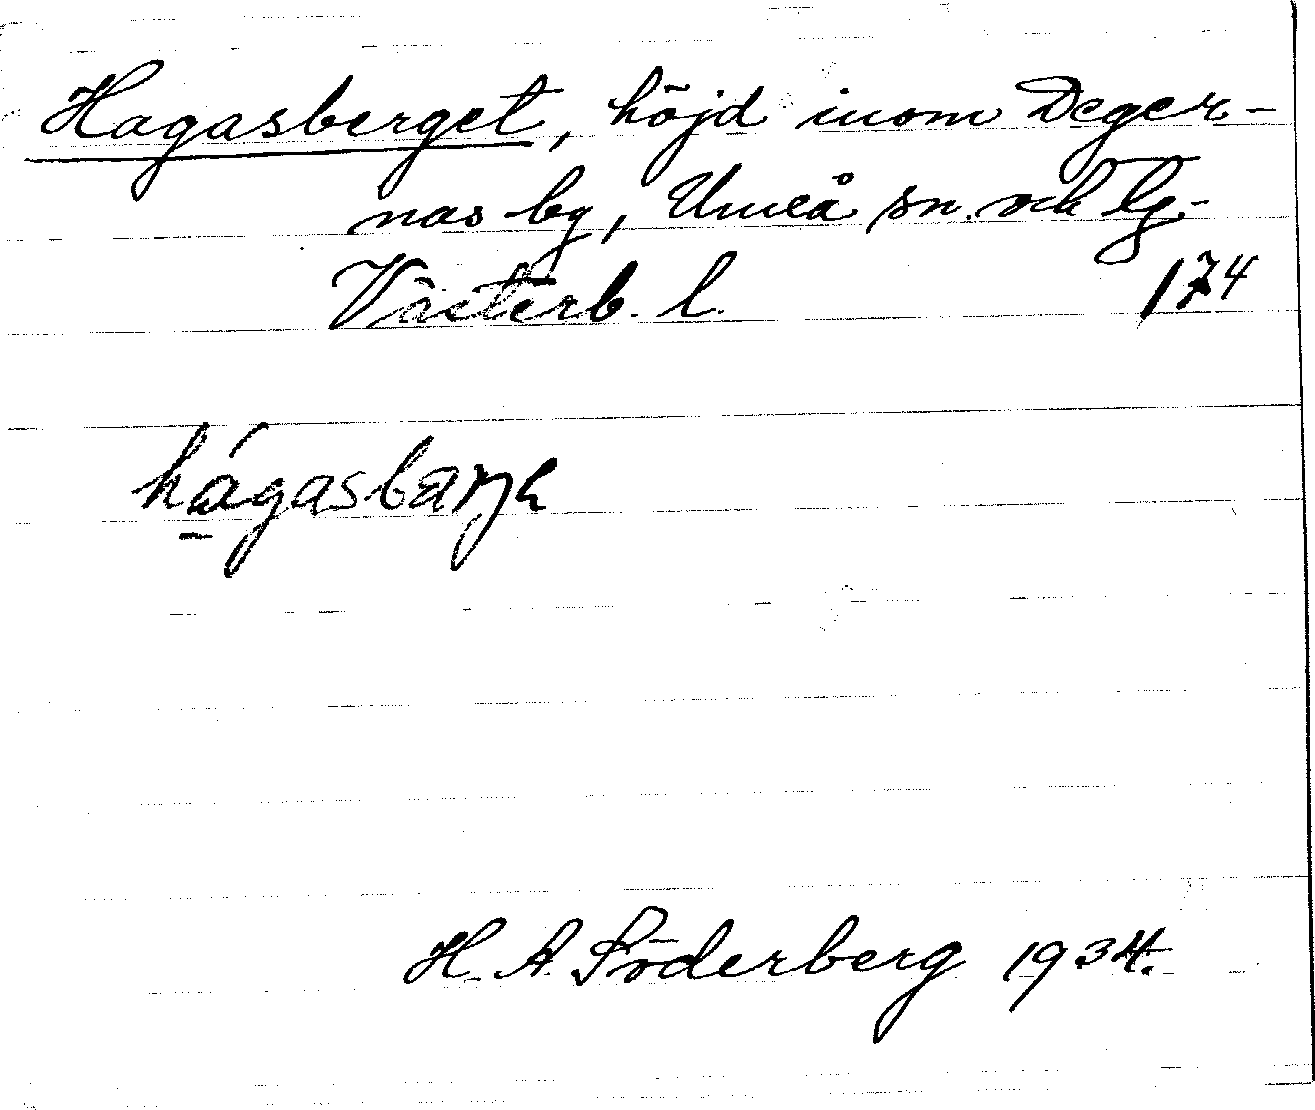 Hagasberget, höjd inom Deger-
näs by, Umeå sn. och tg.
Västerb. l. 174
hágasbarjɛ
H. A. Söderberg 1934.